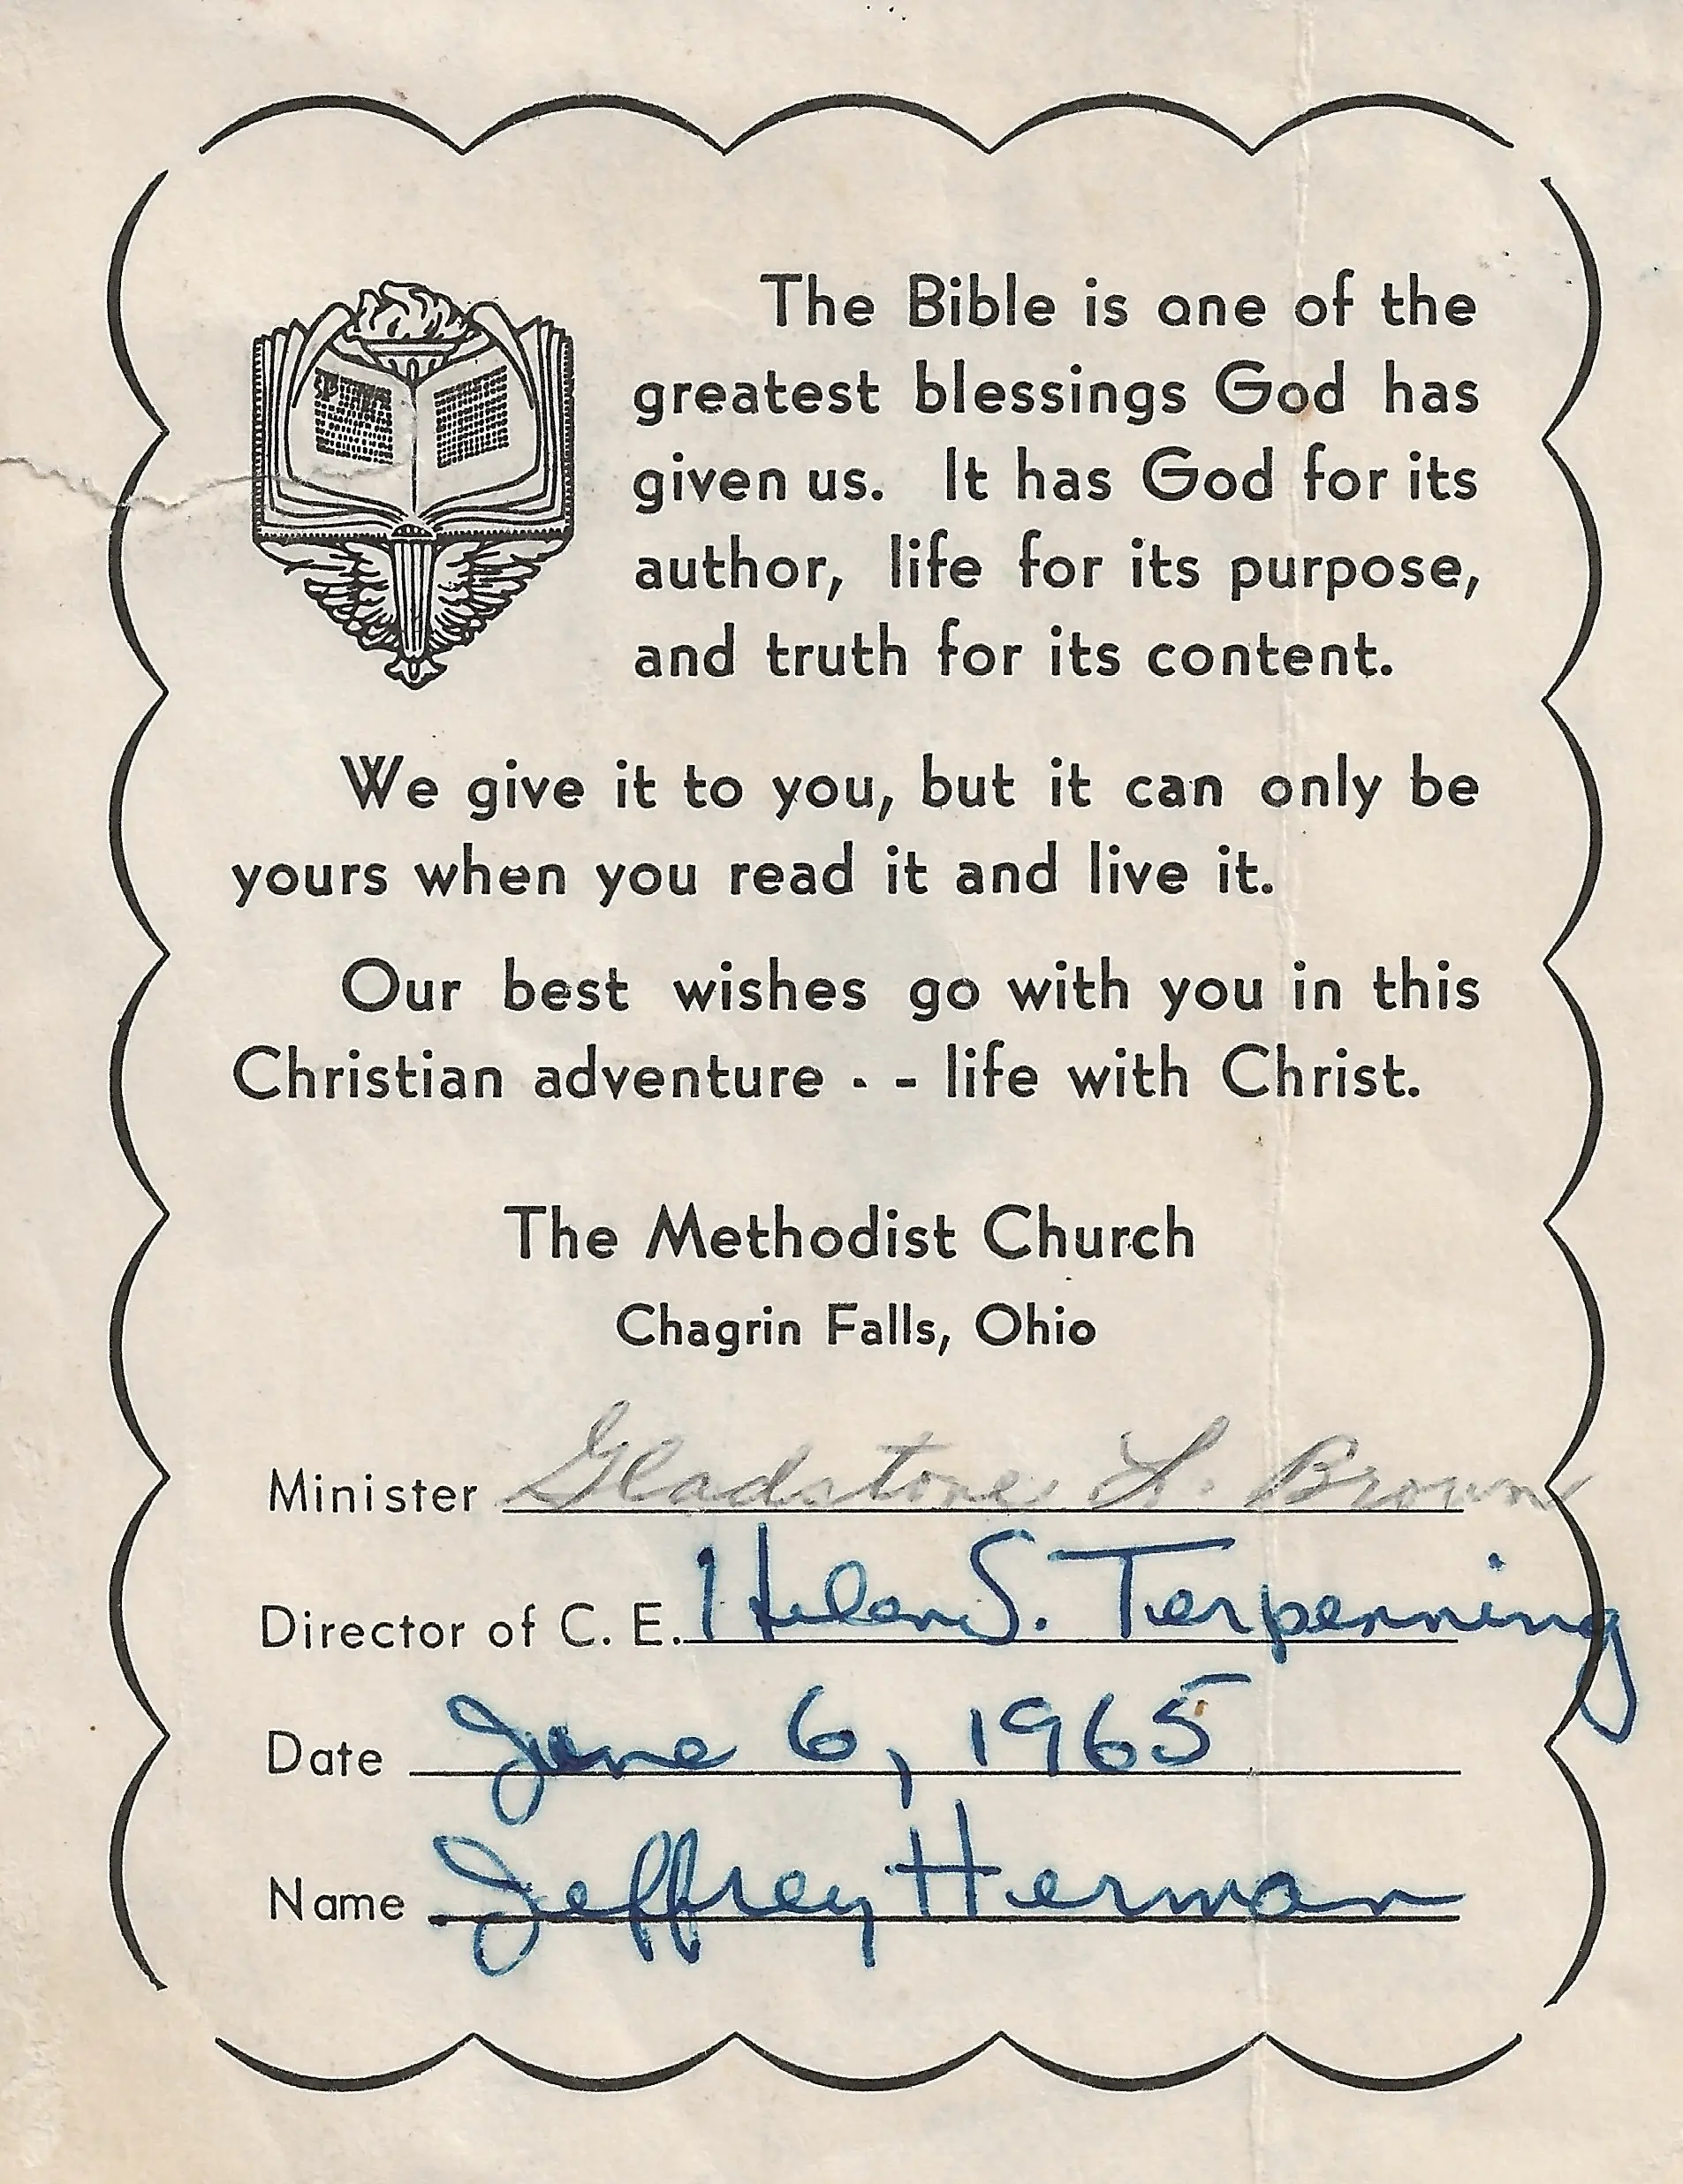 The Bible is one of the
greatest blessings God has
given us. It has God for its
author, life for its purpose,
and truth for its content.
We give it to you, but it can only be
yours when you read it and live it.
Our best wishes go with you in this
Christian adventure - - life with Christ.
The Methodist Church
Chagrin Falls, Ohio
Minister Gladstone L. Brown
Director of C. E. Helen S. Terpenning
Date June 6, 1965
Name Jeffrey Herman